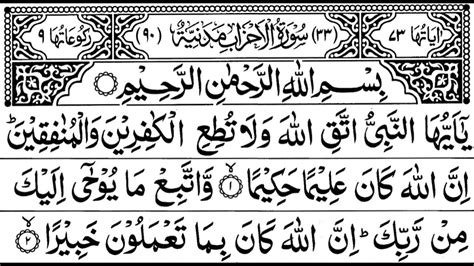 اٰيَاتُهَا ٧٣ (٣٣) سُوْرَةُ الْاَحْزَابِ مَدَنِيَّةٌ (٩٠) رُكُوْعَاتُهَا ٩
بِسْمِ اللهِ الرَّحْمٰنِ الرَّحِيْمِ
يٰۤاَيُّهَا النَّبِيُّ اتَّقِ اللهَ وَلَا تُطِعِ الْكٰفِرِيْنَ وَالْمُنٰفِقِيْنَ ؕ
اِنَّ اللهَ كَانَ عَلِيْمًا حَكِيْمًا ۙ﴿١﴾ وَّاتَّبِعْ مَا يُوْحٰۤى اِلَيْكَ
مِنْ رَّبِّكَ ؕ اِنَّ اللهَ كَانَ بِمَا تَعْمَلُوْنَ خَبِيْرًا ۙ﴿٢﴾